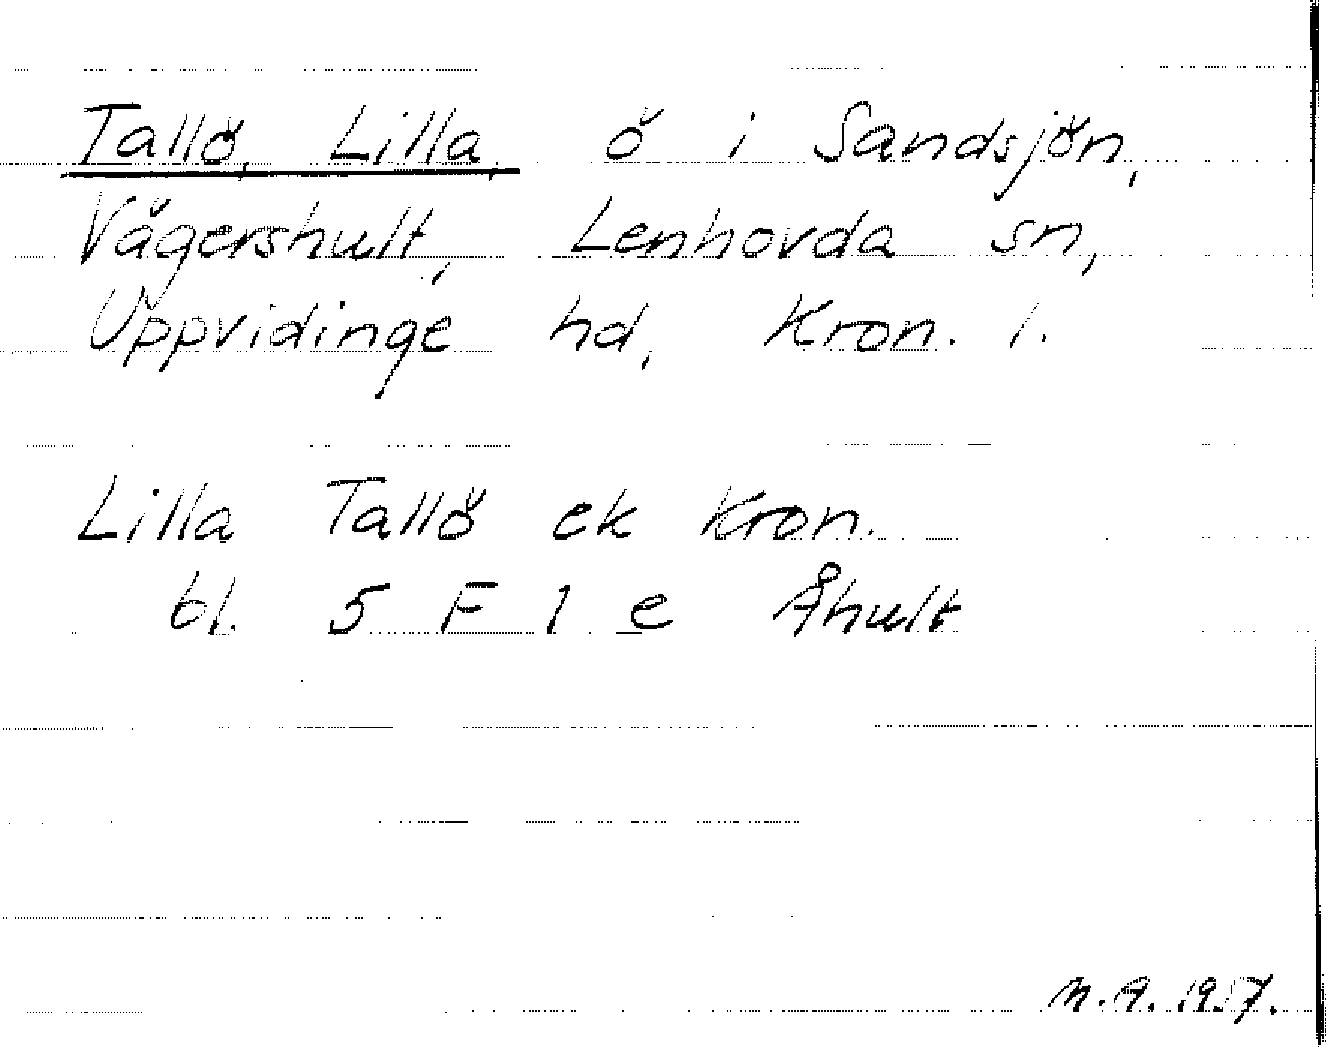 Tallö, Lilla, ö i Sandsjön,
Vägershult, Lenhovda sn,
Uppvidinge hd, Kron. l.
Lilla Tallö ek Kron.
bl. 5 F 1 e Åhult
N.A. 1957.